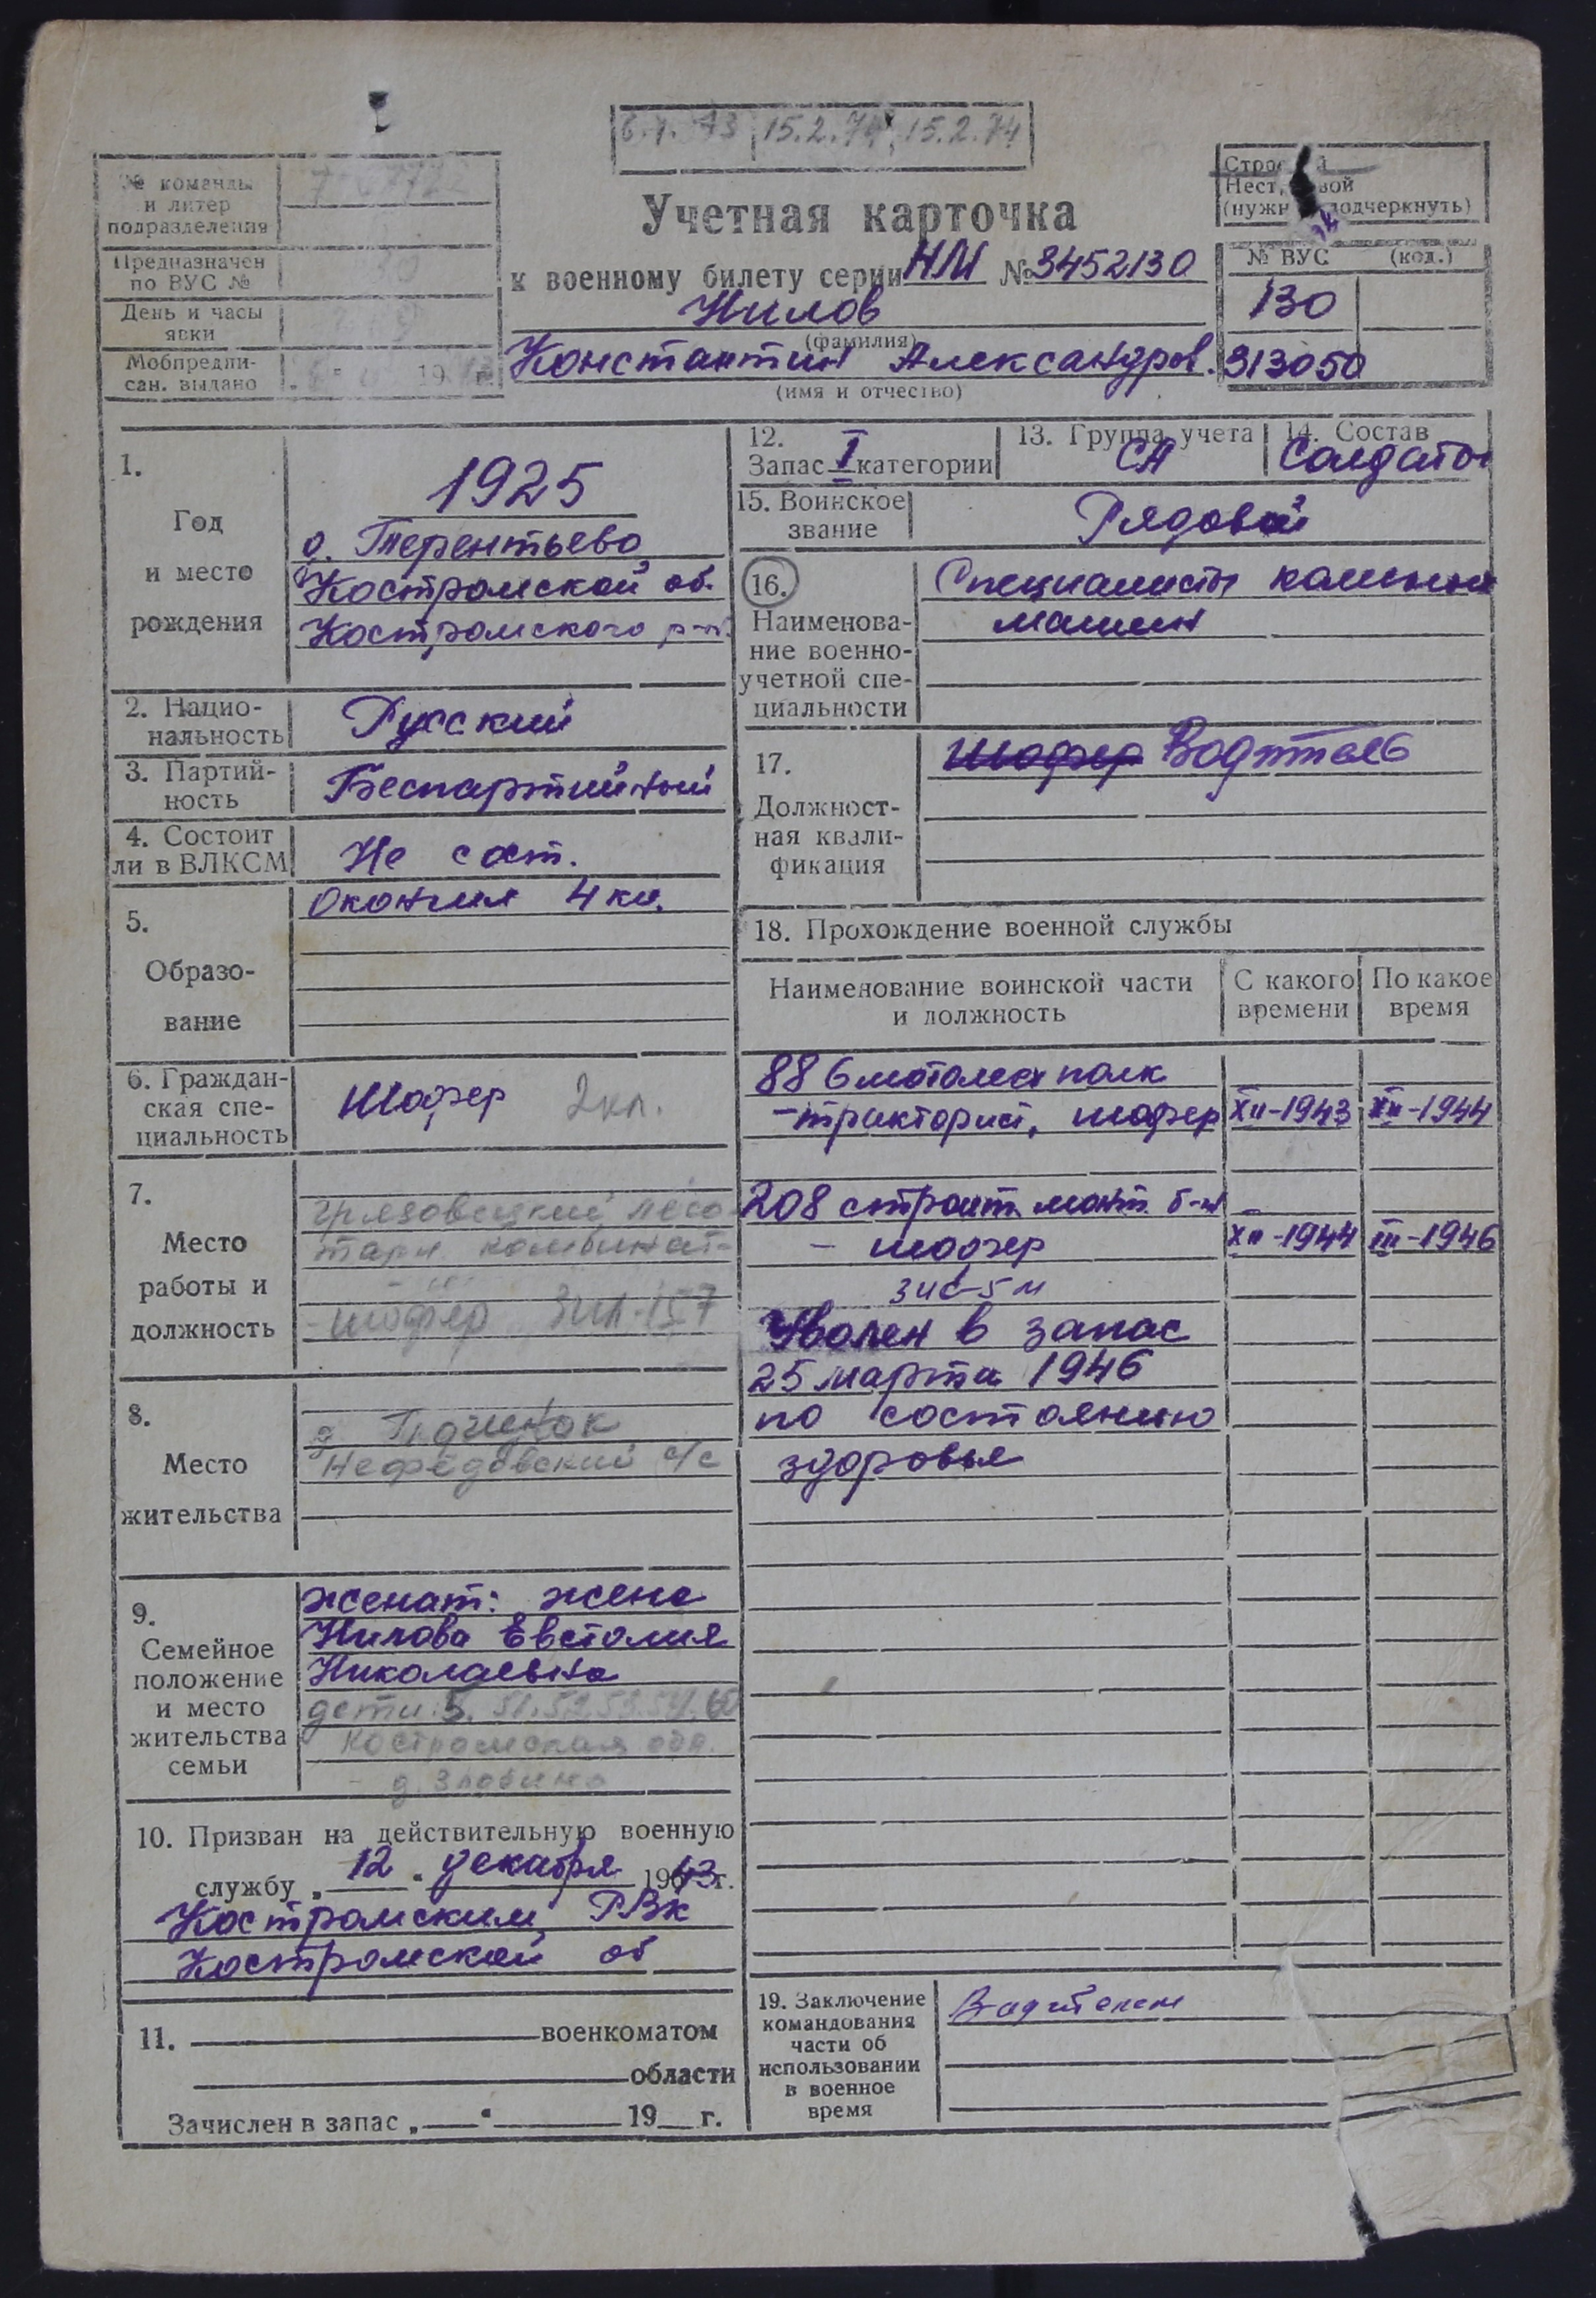 6.1.73 15.2.74 15.2.74
№ команды
и литер
подразделения
Предназначен
по ВУС №
День и часы
явки
Мобпредпи-
сан. выдано
19 г.
Учетная карточка
к военному билету серии НМ № 3452130
Нилов
(фамилия)
Константин Александров.
(имя и отчество)
Строевой
Нестроевой
(нужное подчеркнуть)
№ ВУС (код.)
130
313050
1.
Год
и место
рождения
1925
д. Терентьево
Костромской об.
Костромского р-н.
2. Нацио-
нальность
Русский
3. Партий-
ность
Беспартийный
4. Состоит
ли в ВЛКСМ
Не сост.
5.
Образо-
вание
Окончил 4 кл.
6. Граждан-
ская спе-
циальность
Шофер 2 кл.
7.
Место
работы и
должность
Грязовецкий лесо
тарн. комбинат-
- шофер ЗИЛ-157
8.
Место
жительства
д. Починок
Нефедовский с/с
9.
Семейное
положение
и место
жительства
семьи
женат: жена
Нилова Евстолия
Николаевна
дети: 5. 51.52.53.54.60
Костромская обл.
д. Злобино
10. Призван на действительную военную
службу „12“ декабря 1943 г.
Костромским РВК
Костромской об
11. военкоматом
области
Зачислен в запас „ “ 19 г.
12.
Запас I категории
13. Группа учета
СА
14. Состав
Солдаты
15. Воинское
звание
Рядовой
16.
Наименова-
ние военно-
учетной спе-
циальности
Специалисты колесных
машин
17.
Должност-
ная квали-
фикация
Шофер Водитель
18. Прохождение военной службы
Наименование воинской части
и должность
С какого
времени
По какое
время
88 6мотомех полк
- тракторист, шофер XII-1943 XII-1944
208 строит. монт. б-н
- шофер XII-1944 III-1946
ЗИС-5 м
Уволен в запас
25 марта 1946
по состоянию
здоровья
19. Заключение
командования
части об
использовании
в военное
время
Водителем